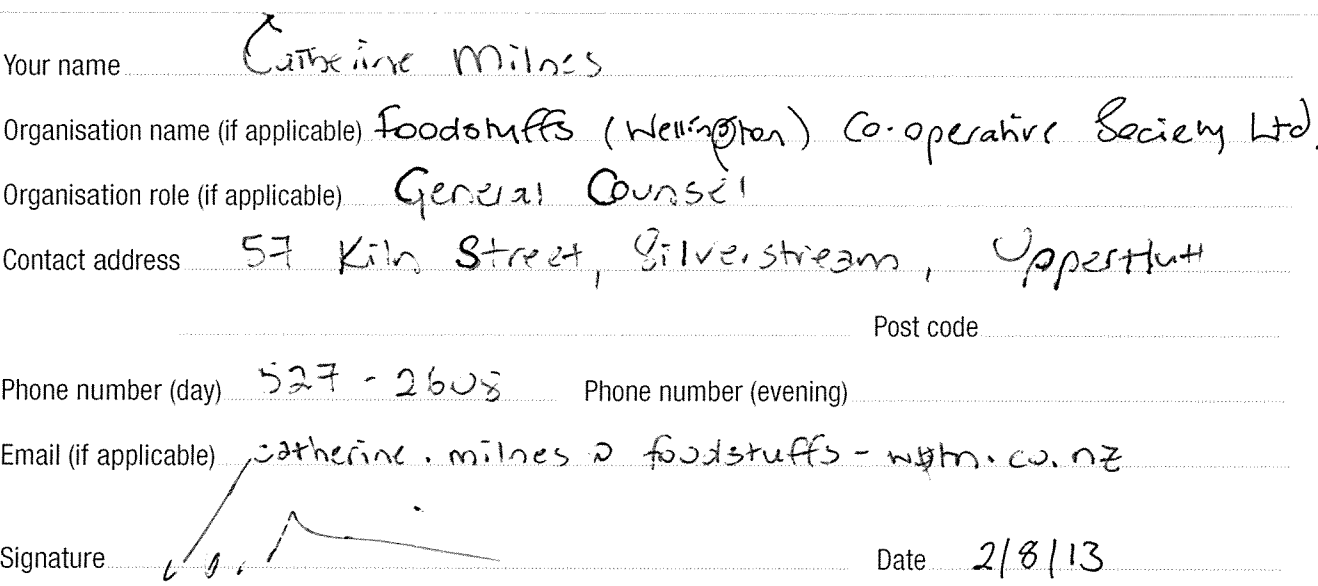 Your name Catherine Milnes
Organisation name (if applicable) Foodstuffs (Wellington) Co-operative Society Ltd.
Organisation role (if applicable) General Counsel
Contact address 57 Kiln Street, Silverstream, Upper Hutt
Post code
Phone number (day) 527 - 2608 Phone number (evening)
Email (if applicable) catherine.milnes@foodstuffs-wgtn.co.nz
Signature Date 2/8/13